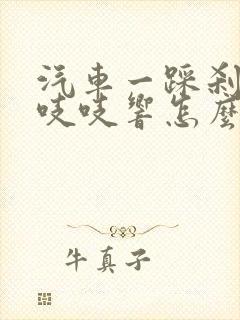 汽車一踩刹
吱吱響怎麼
牛真子